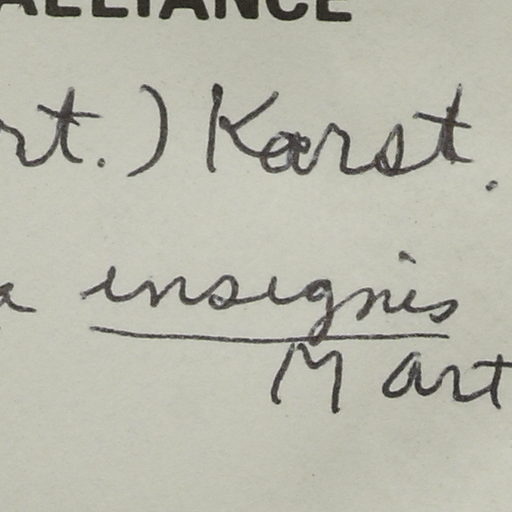 ALLIANCE
rt.) Karst.
a insignis
Mart